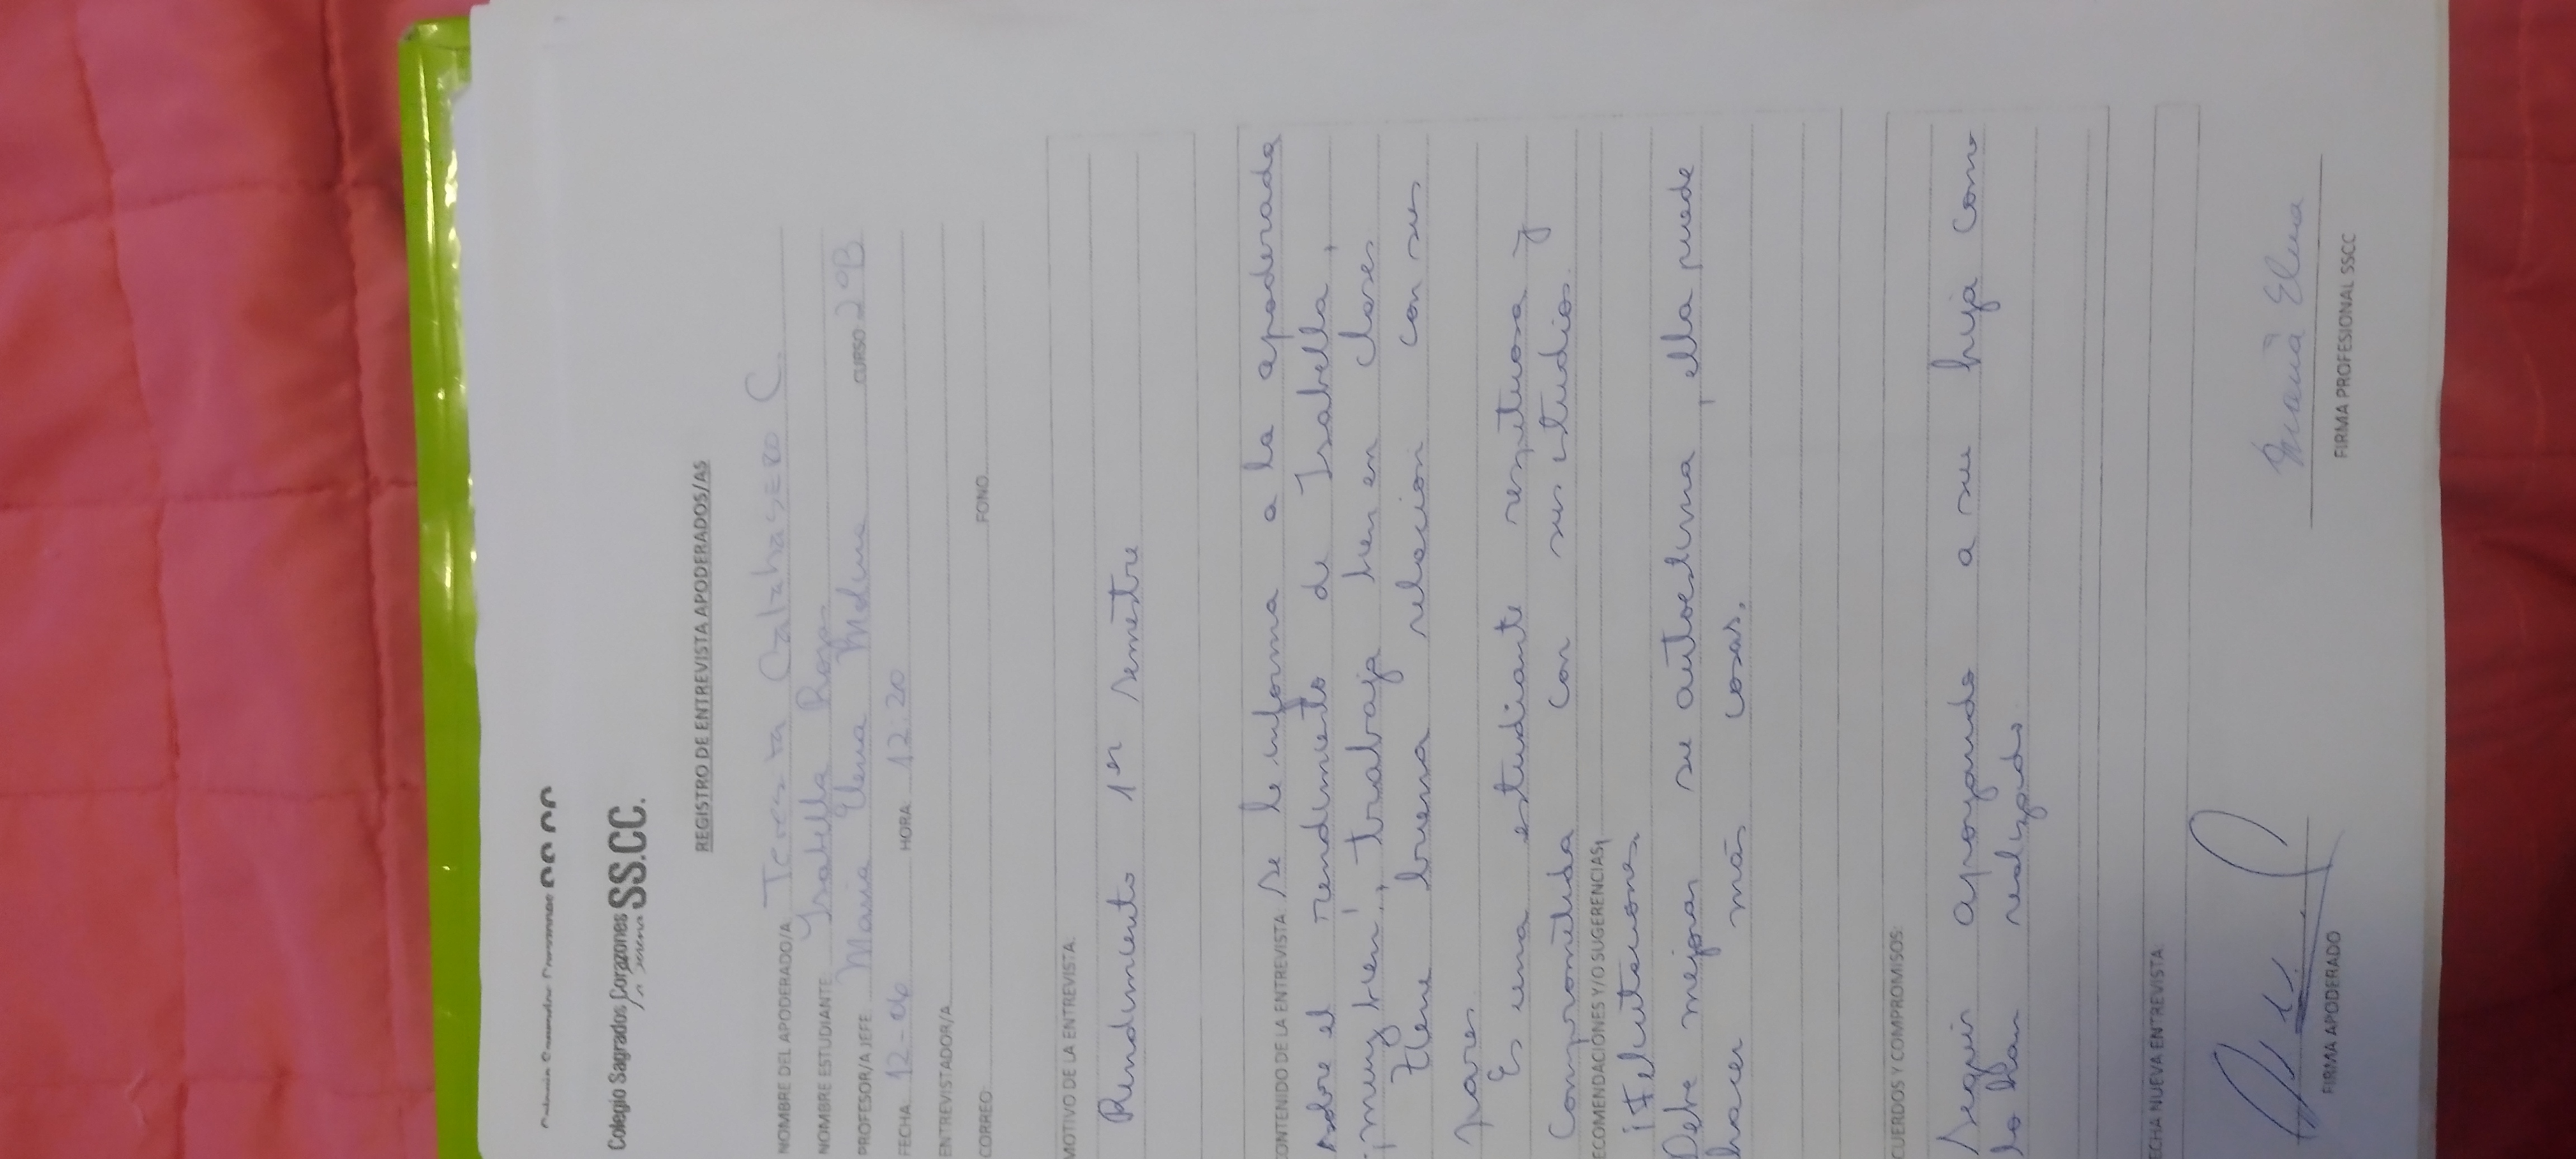 Colegio Sagrados Corazones SS.CC.
La Serena
REGISTRO DE ENTREVISTA APODERADOS/AS
NOMBRE DEL APODERADO/A Teresita C
NOMBRE ESTUDIANTE Isabella Rojas
PROFESOR/A JEFE Maria Elena Molina CURSO 2ºB
FECHA 12-06 HORA: 12:20
ENTREVISTADOR/A
CORREO: FONO
MOTIVO DE LA ENTREVISTA:
Rendimiento 1er semestre
CONTENIDO DE LA ENTREVISTA: Se le informa a la apoderada
sobre el rendimiento de Isabella,
¡muy bien!, trabaja bien en clases
Tiene buena relación con sus
pares.
Es una estudiante respetuosa y
Comprometida con sus estudios.
ECOMENDACIONES Y/O SUGERENCIAS:
¡Felicitaciones!
Debe mejorar su autoestima, ella puede
hacer más cosas.
CUERDOS Y COMPROMISOS:
Seguir apoyando a su hija como
lo han realizado.
ECHA NUEVA ENTREVISTA:
FIRMA APODERADO
María Elena
FIRMA PROFESIONAL SSCC